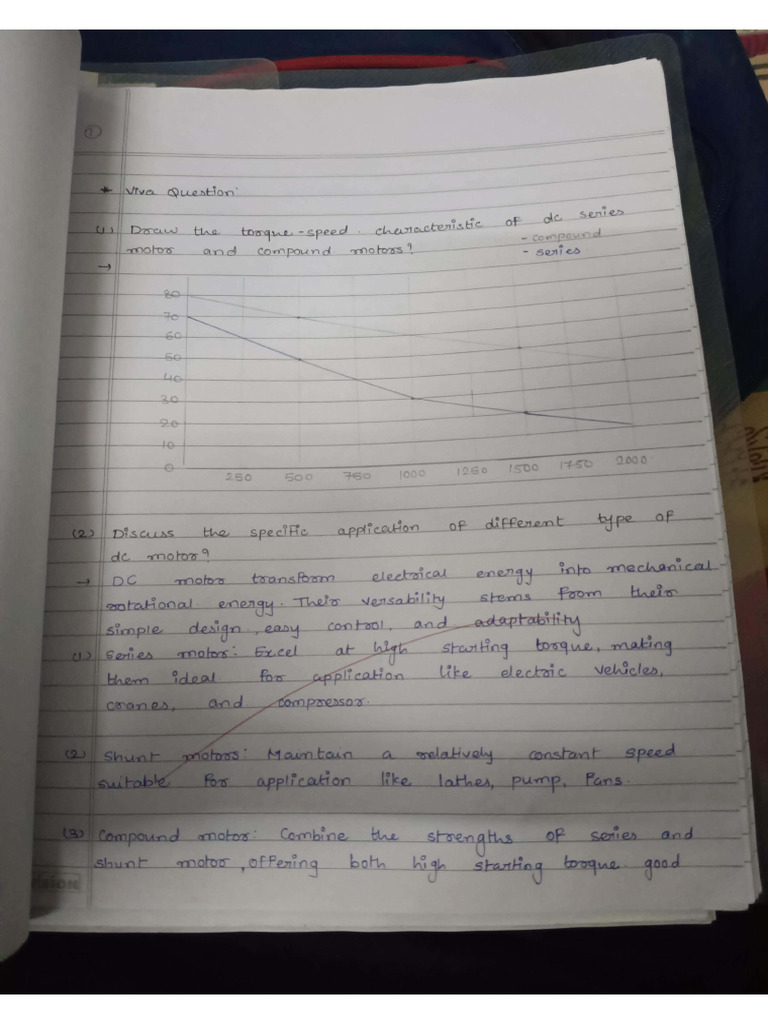 ①
* Viva Question:
(1) Draw the torque-speed characteristic of dc series
motor and compound motors?
- compound
- series
→
80
70
60
50
40
30
20
10
0
250 500 750 1000 1250 1500 1750 2000
(2) Discuss the specific application of different type of
dc motor?
→ DC motor transform electrical energy into mechanical
rotational energy. Their versability stems from their
simple design, easy control, and adaptability
(1) Series motor: Excel at high starting torque, making
them ideal for application like electric vehicles,
cranes, and compressor.
(2) Shunt motors: Maintain a relatively constant speed
suitable for application like lathes, pump, fans.
(3) Compound motor: Combine the strengths of series and
shunt motor, offering both high starting torque good